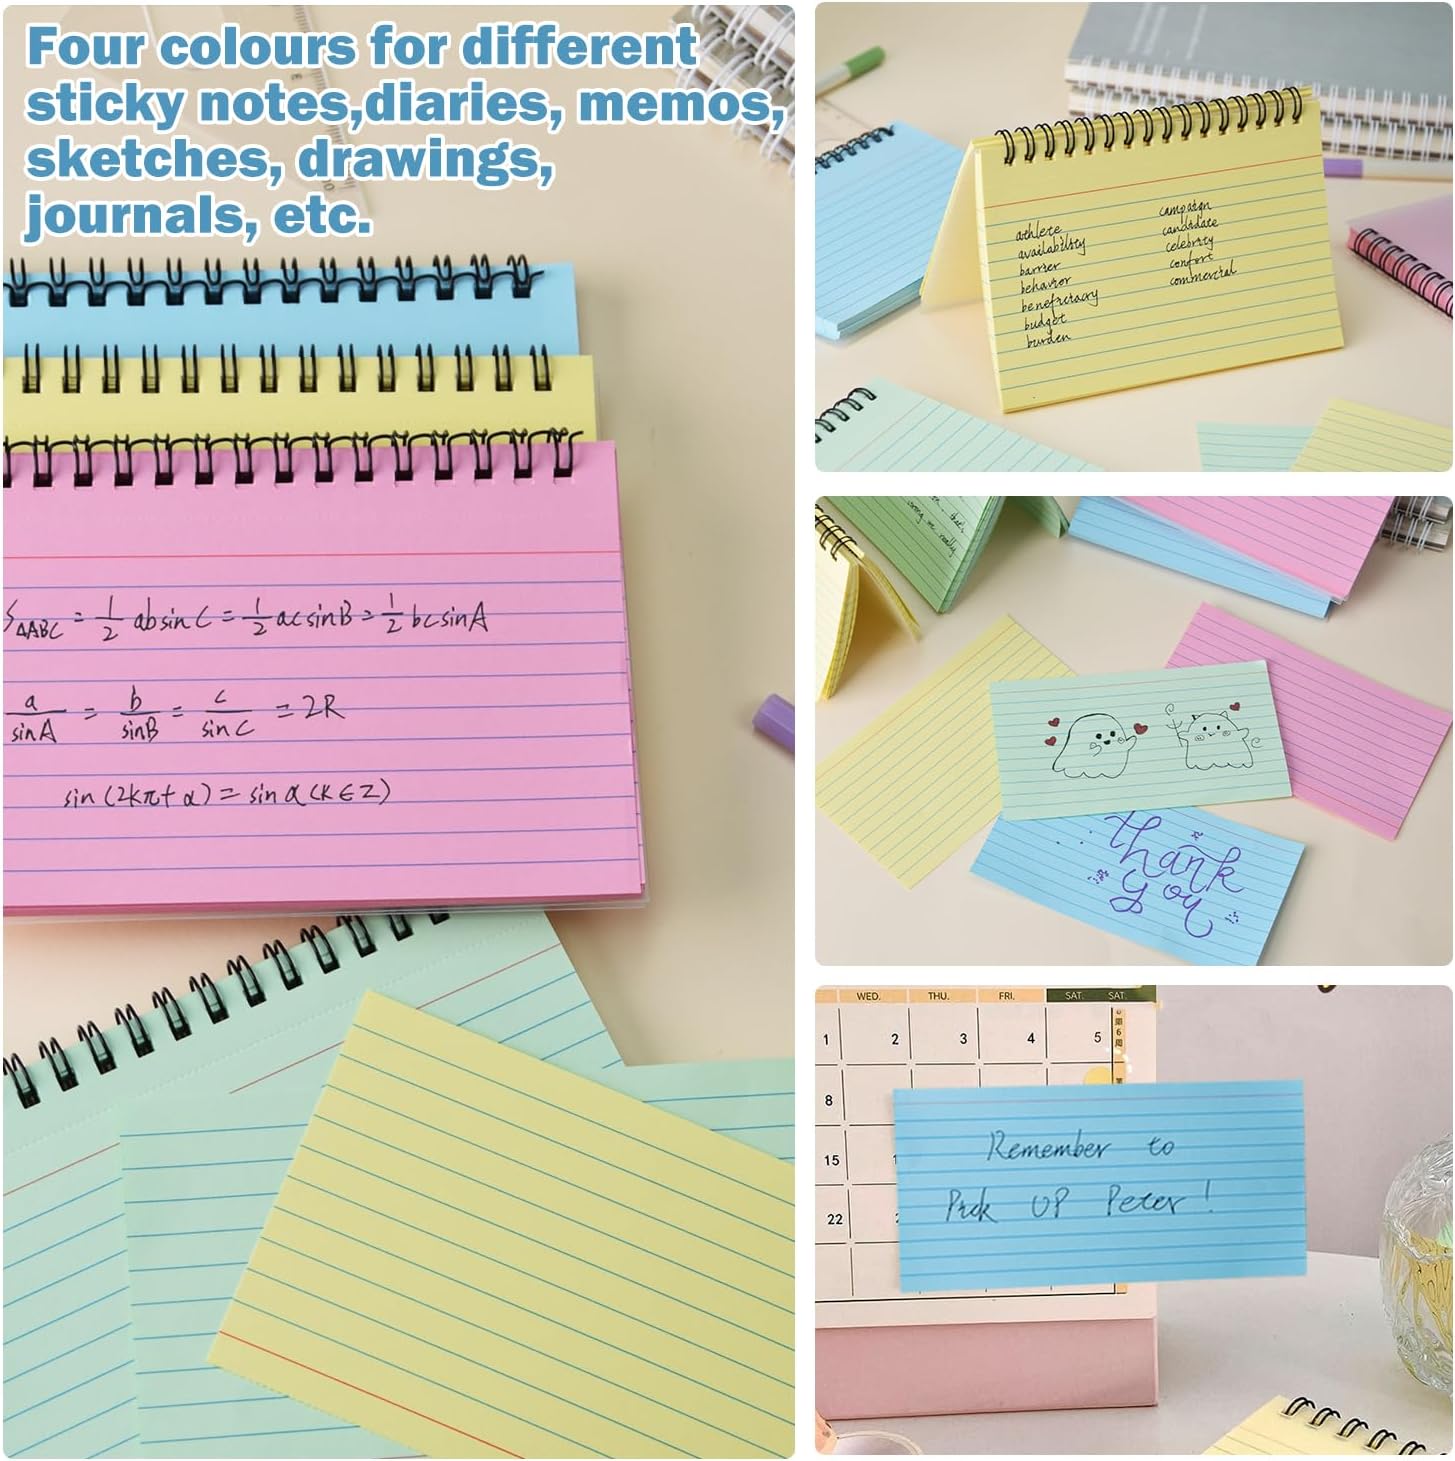 Four colours for different
sticky notes,diaries, memos,
sketches, drawings,
journals, etc.
S△ABC = 1/2 ab sin C = 1/2 ac sin B = 1/2 bc sin A
a/sin A = b/sin B = c/sin C = 2R
sin (2kπ + α) = sin α (K ∈ Z)
athlete
availability
barrier
behavior
beneficiary
budget
burden
campaign
candidate
celebrity
comfort
commercial
thank
you
WED. THU. FRI. SAT. SAT.
1 2 3 4 5
8
15
22
Remember to
Pick UP Peter!